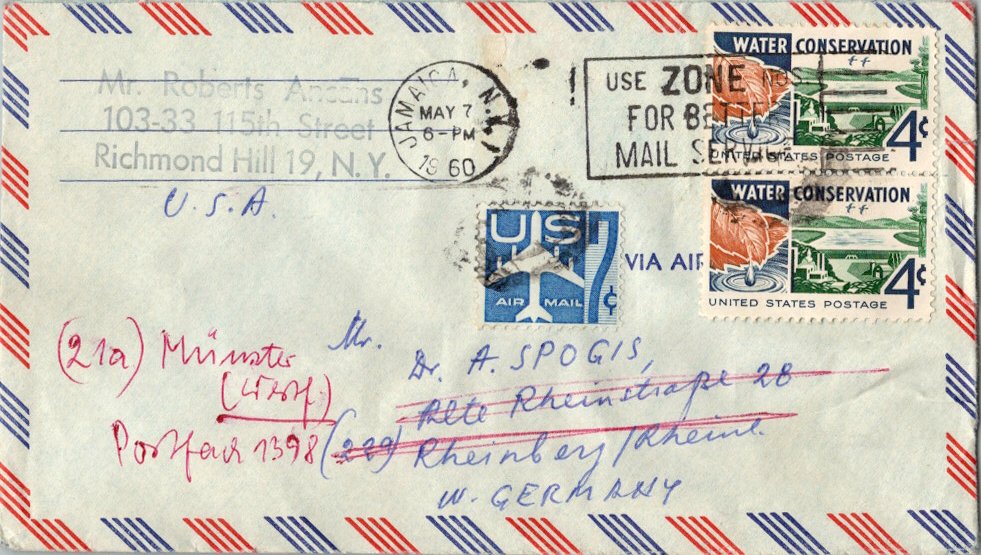 Mr. Roberts Ansans
103-33 115th Street
Richmond Hill 19, N.Y.
U.S.A.
JAMAICA, N.Y.
MAY 7
6-PM
1960
USE ZONE NOS.
FOR BETTER
MAIL SERVICE
WATER CONSERVATION
4¢
UNITED STATES POSTAGE
WATER CONSERVATION
4¢
UNITED STATES POSTAGE
US
7¢
AIR MAIL
VIA AIR
Mr.
Dr. A. SPOGIS,
Alte Rheinstraße 28
(229) Rheinberg/Rheinl.
W. GERMANY
(21a) Münster
(Westf.)
Postfach 1398